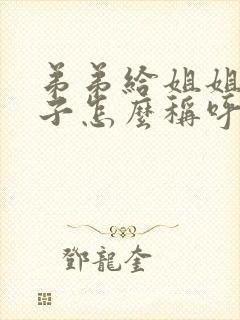 弟弟給姐姐
子怎麼稱呼
鄧龍奎